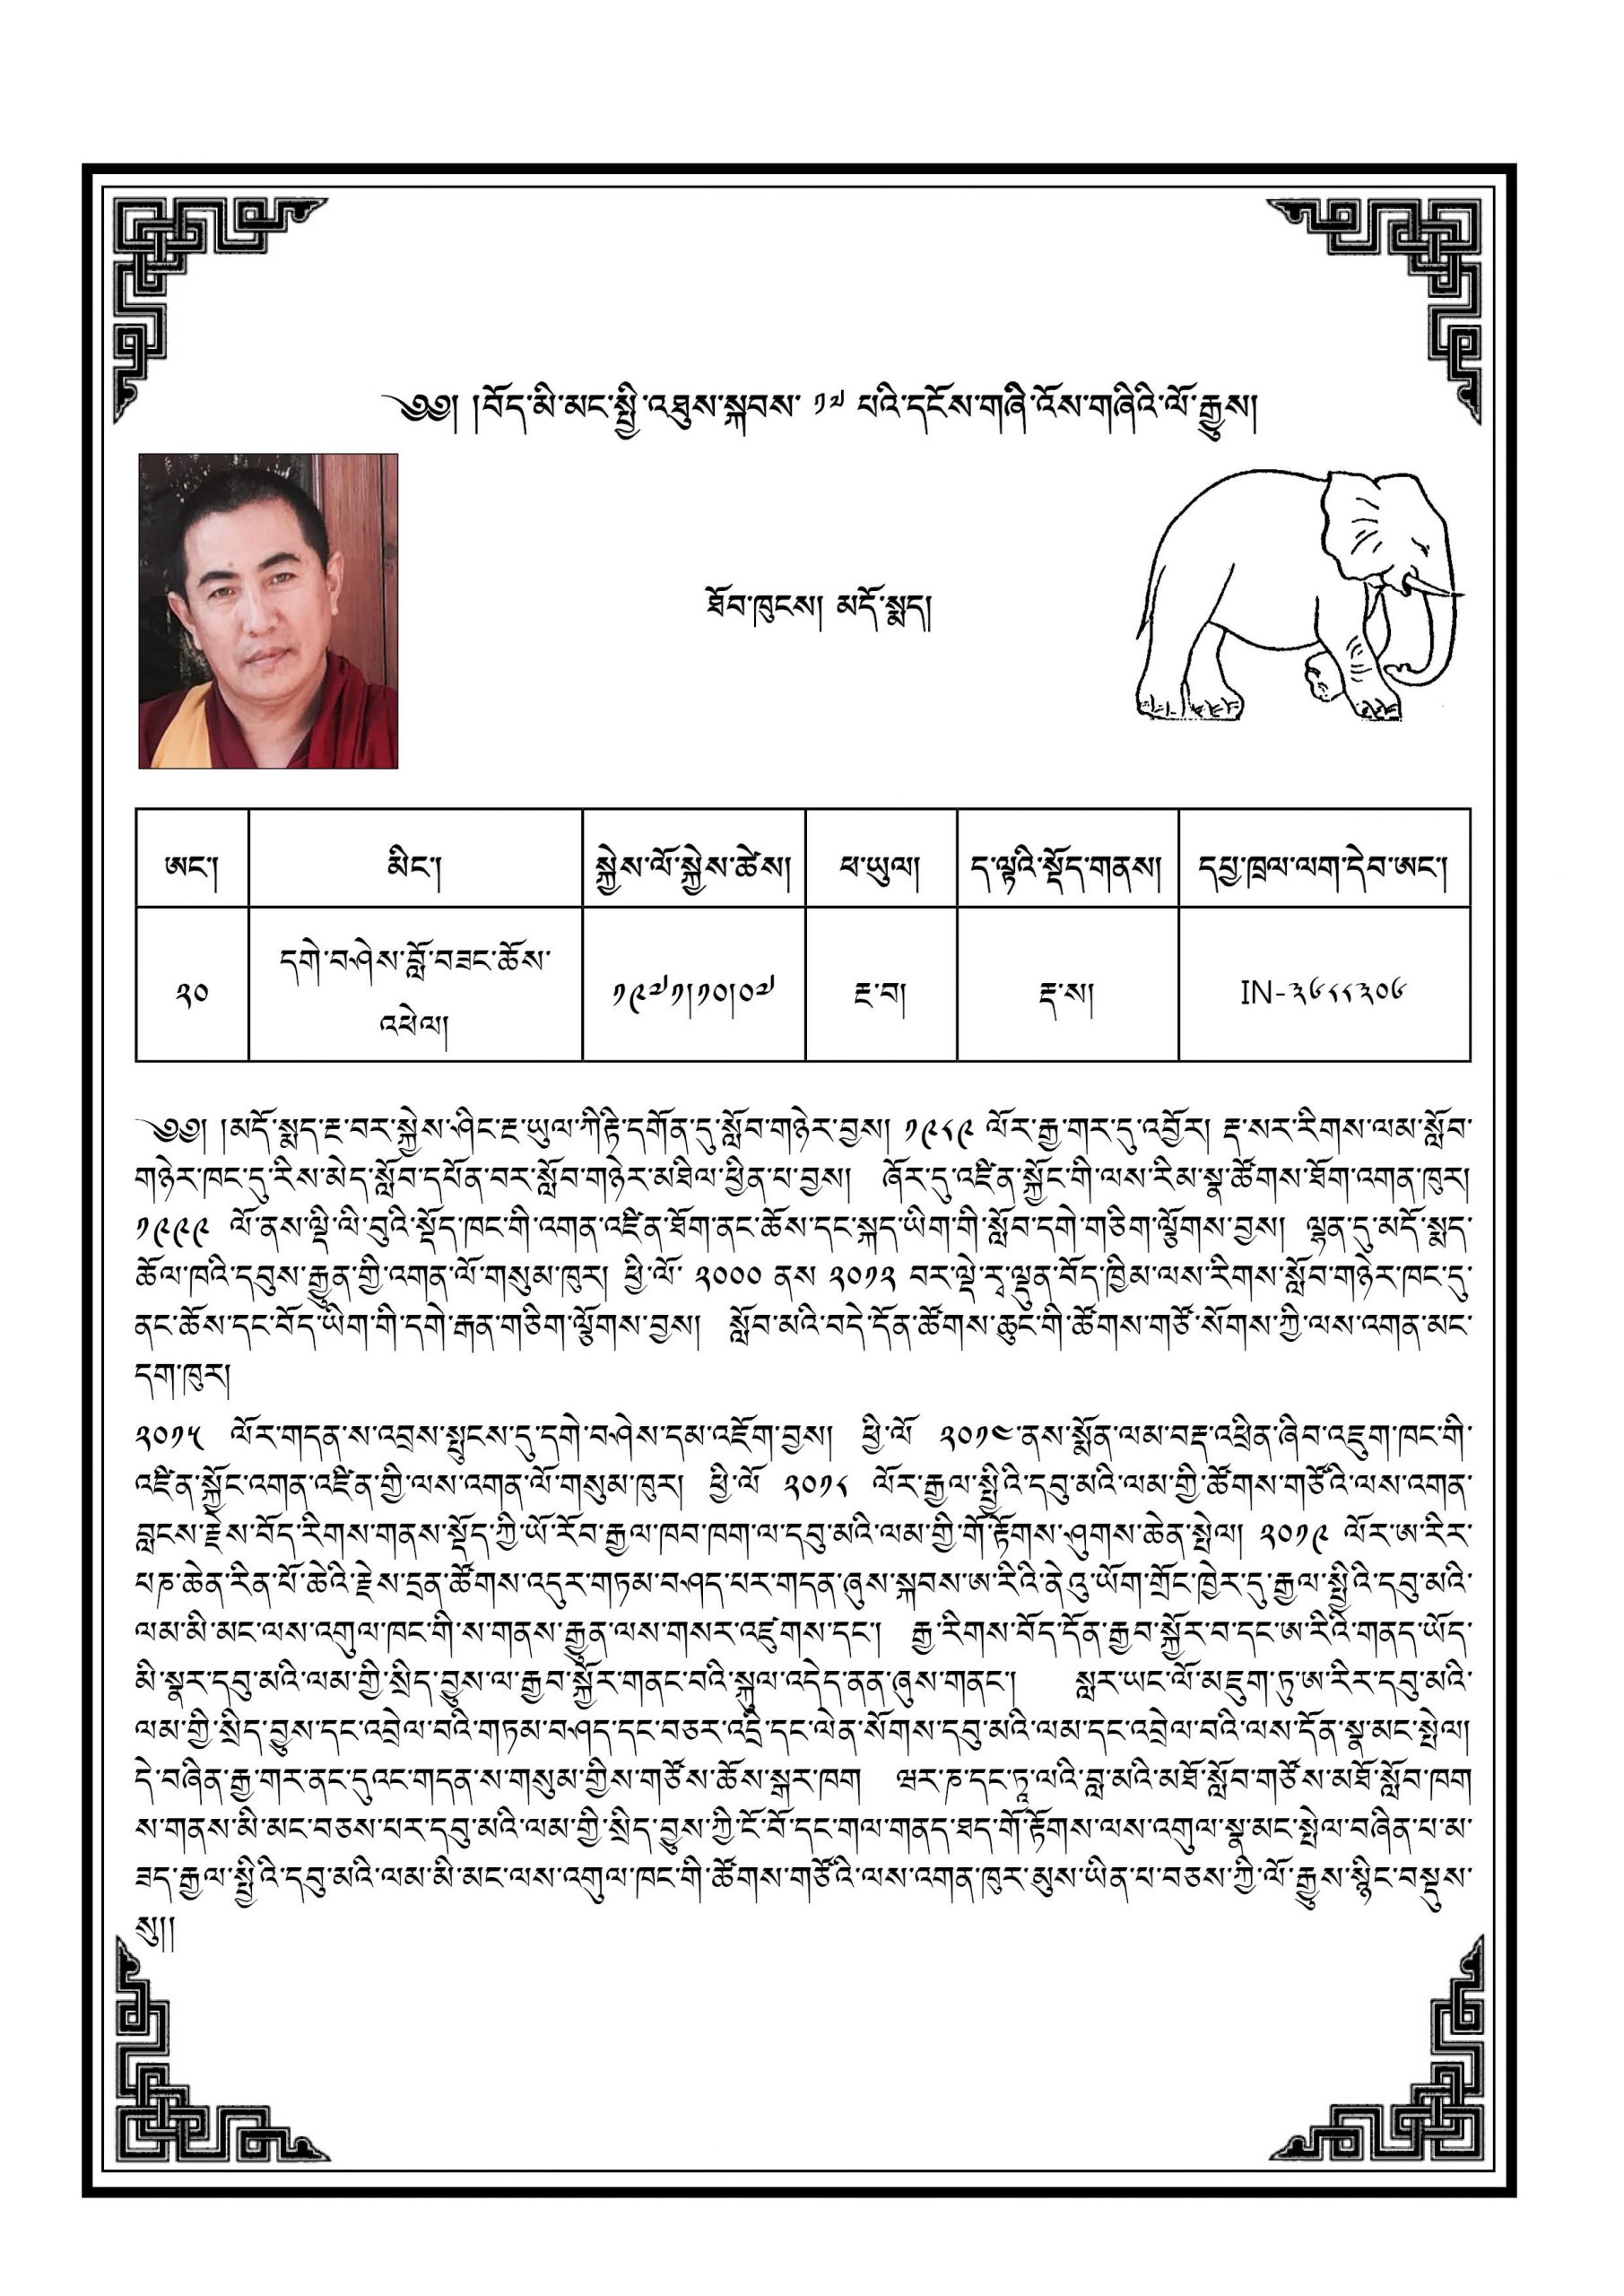 ༄༅། །བོད་མི་མང་སྤྱི་འཐུས་སྐབས་ ༡༧ པའི་དངོས་གཞི་འོས་གཞིའི་ལོ་རྒྱུས།
ཐོབ་ཁུངས། མདོ་སྨད།
ཨང་། མིང་། སྐྱེས་ལོ་སྐྱེས་ཚེས། ཕ་ཡུལ། ད་ལྟའི་སྡོད་གནས། དཔྱ་ཁྲལ་ལག་དེབ་ཨང་།
༢༠ དགེ་བཤེས་བློ་བཟང་ཆོས་
འཕེལ། ༡༩༧༡།༡༠།༠༧ རྔ་བ། རྡ་ས། IN-༣༦༨༨༣༠༦
༄༅། །མདོ་སྨད་རྔ་བར་སྐྱེས་ཤིང་རྔ་ཡུལ་ཀིརྟི་དགོན་དུ་སློབ་གཉེར་བྱས། ༡༩༨༩ ལོར་རྒྱ་གར་དུ་འབྱོར། རྡ་སར་རིགས་ལམ་སློབ་
གཉེར་ཁང་དུ་རིས་མེད་སློབ་དཔོན་བར་སློབ་གཉེར་མཐིལ་ཕྱིན་པ་བྱས། ཞོར་དུ་འཛིན་སྐྱོང་གི་ལས་རིམ་སྣ་ཚོགས་ཐོག་འགན་ཁུར།
༡༩༩༩ ལོ་ནས་ལྡི་ལི་བུའི་སྡོད་ཁང་གི་འགན་འཛིན་ཐོག་ནང་ཆོས་དང་སྐད་ཡིག་གི་སློབ་དགེ་གཅིག་ལྕོགས་བྱས། ལྷན་དུ་མདོ་སྨད་
ཆོལ་ཁའི་དབུས་རྒྱུན་གྱི་འགན་ལོ་གསུམ་ཁུར། ཕྱི་ལོ་ ༢༠༠༠ ནས ༢༠༡༢ བར་ལྡེ་ར་ལྡུན་བོད་ཁྱིམ་ལས་རིགས་སློབ་གཉེར་ཁང་དུ་
ནང་ཆོས་དང་བོད་ཡིག་གི་དགེ་རྒན་གཅིག་ལྕོགས་བྱས། སློབ་མའི་བདེ་དོན་ཚོགས་ཆུང་གི་ཚོགས་གཙོ་སོགས་ཀྱི་ལས་འགན་མང་
དག་ཁུར།
༢༠༡༥ ལོར་གདན་ས་འབྲས་སྤུངས་དུ་དགེ་བཤེས་དམ་འཇོག་བྱས། ཕྱི་ལོ ༢༠༡༤་ནས་སྨོན་ལམ་བརྡ་འཕྲིན་ཞིབ་འཇུག་ཁང་གི་
འཛིན་སྐྱོང་འགན་འཛིན་གྱི་ལས་འགན་ལོ་གསུམ་ཁུར། ཕྱི་ལོ ༢༠༡༨ ལོར་རྒྱལ་སྤྱིའི་དབུ་མའི་ལམ་གྱི་ཚོགས་གཙོའི་ལས་འགན་
བླངས་རྗེས་བོད་རིགས་གནས་སྡོད་ཀྱི་ཡོ་རོབ་རྒྱལ་ཁབ་ཁག་ལ་དབུ་མའི་ལམ་གྱི་གོ་རྟོགས་ཤུགས་ཆེན་སྤེལ། ༢༠༡༩ ལོར་ཨ་རིར་
པཎ་ཆེན་རིན་པོ་ཆེའི་རྗེས་དྲན་ཚོགས་འདུར་གཏམ་བཤད་པར་གདན་ཞུས་སྐབས་ཨ་རིའི་ནེའུ་ཡོག་གྲོང་ཁྱེར་དུ་རྒྱལ་སྤྱིའི་དབུ་མའི་
ལམ་མི་མང་ལས་འགུལ་ཁང་གི་ས་གནས་རྒྱུན་ལས་གསར་འཛུགས་དང་། རྒྱ་རིགས་བོད་དོན་རྒྱབ་སྐྱོར་བ་དང་ཨ་རིའི་གནད་ཡོད་
མི་སྣར་དབུ་མའི་ལམ་གྱི་སྲིད་བྱུས་ལ་རྒྱབ་སྐྱོར་གནང་བའི་སྐུལ་འདེད་ནན་ཞུས་གནང་། སླར་ཡང་ལོ་མཇུག་ཏུ་ཨ་རིར་དབུ་མའི་
ལམ་གྱི་སྲིད་བྱུས་དང་འབྲེལ་བའི་གཏམ་བཤད་དང་བཅར་འདྲི་དང་ལེན་སོགས་དབུ་མའི་ལམ་དང་འབྲེལ་བའི་ལས་དོན་སྣ་མང་སྤེལ།
དེ་བཞིན་རྒྱ་གར་ནང་དུའང་གདན་ས་གསུམ་གྱིས་གཙོས་ཆོས་སྒར་ཁག ཝར་ཎ་དང་ཏཱ་ལའི་བླ་མའི་མཐོ་སློབ་གཙོས་མཐོ་སློབ་ཁག
ས་གནས་མི་མང་བཅས་པར་དབུ་མའི་ལམ་གྱི་སྲིད་བྱུས་ཀྱི་ངོ་བོ་དང་གལ་གནད་ཐད་གོ་རྟོགས་ལས་འགུལ་སྣ་མང་སྤེལ་བཞིན་པ་མ་
ཟད་རྒྱལ་སྤྱིའི་དབུ་མའི་ལམ་མི་མང་ལས་འགུལ་ཁང་གི་ཚོགས་གཙོའི་ལས་འགན་ཁུར་མུས་ཡིན་པ་བཅས་ཀྱི་ལོ་རྒྱུས་སྙིང་བསྡུས་
སུ།།